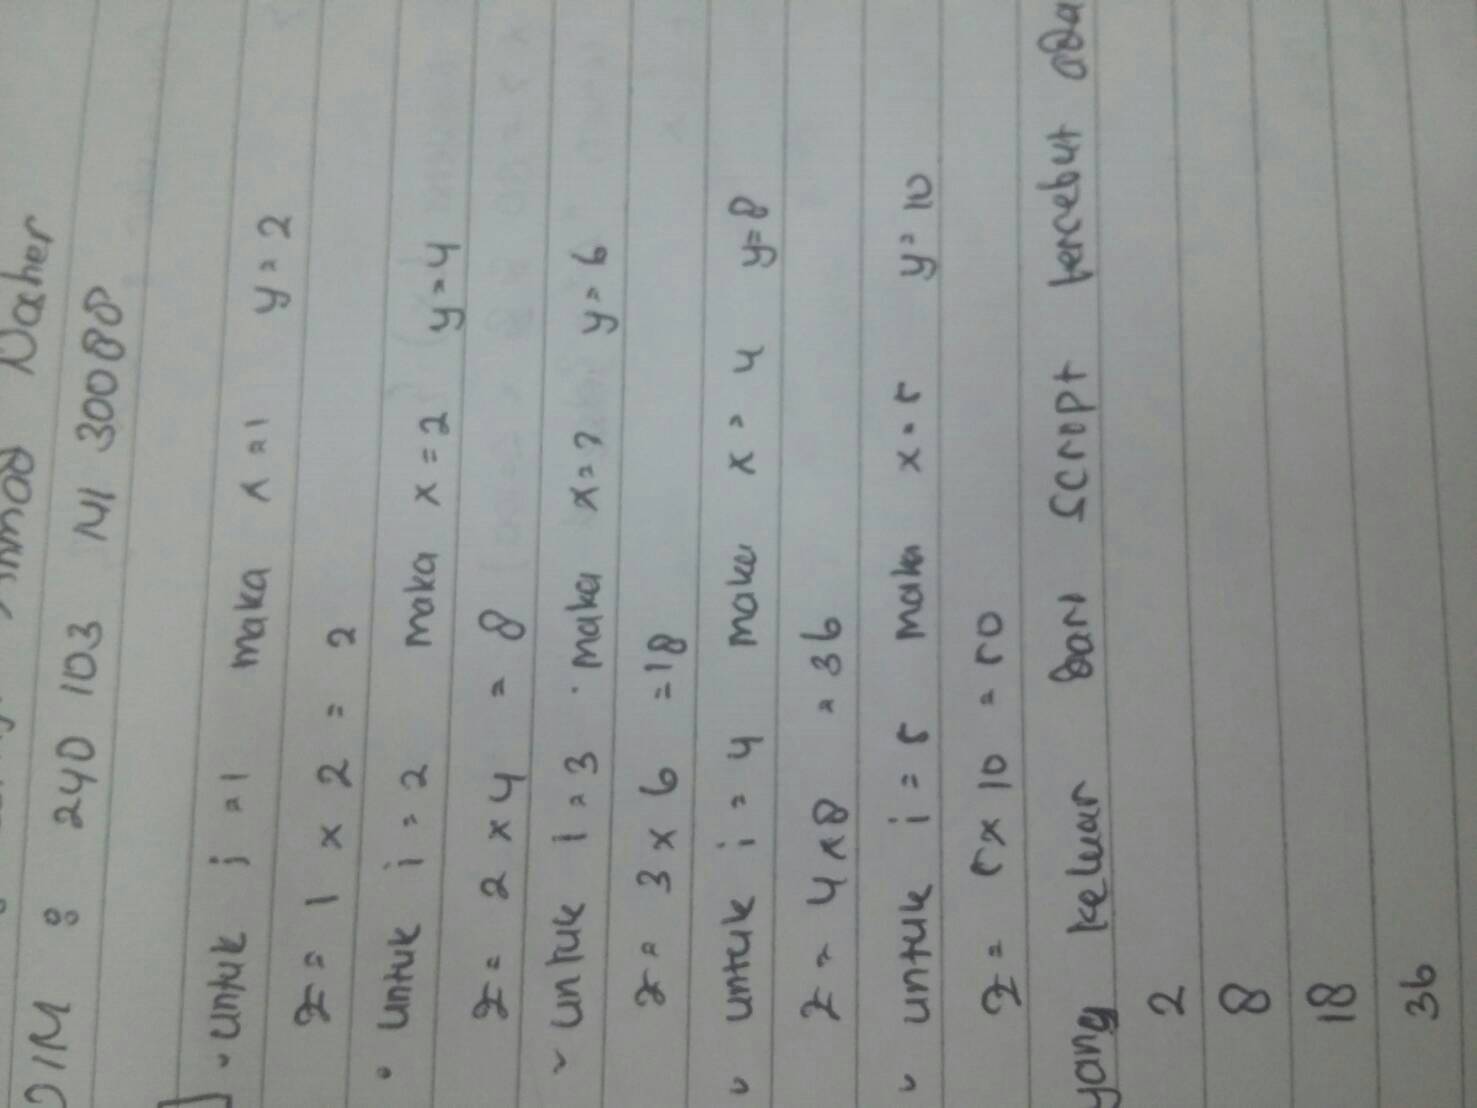 Daher
NIM : 240 103 141 30080
untuk i = 1 maka x = 1 y = 2
z = 1 x 2 = 2
untuk i = 2 maka x = 2 y = 4
z = 2 x 4 = 8
untuk i = 3 maka x = 3 y = 6
z = 3 x 6 = 18
untuk i = 4 maka x = 4 y = 8
z = 4 x 8 = 36
untuk i = 5 maka x = 5 y = 10
z = 5 x 10 = 50
yang keluar dari script tersebut ada
2
8
18
36